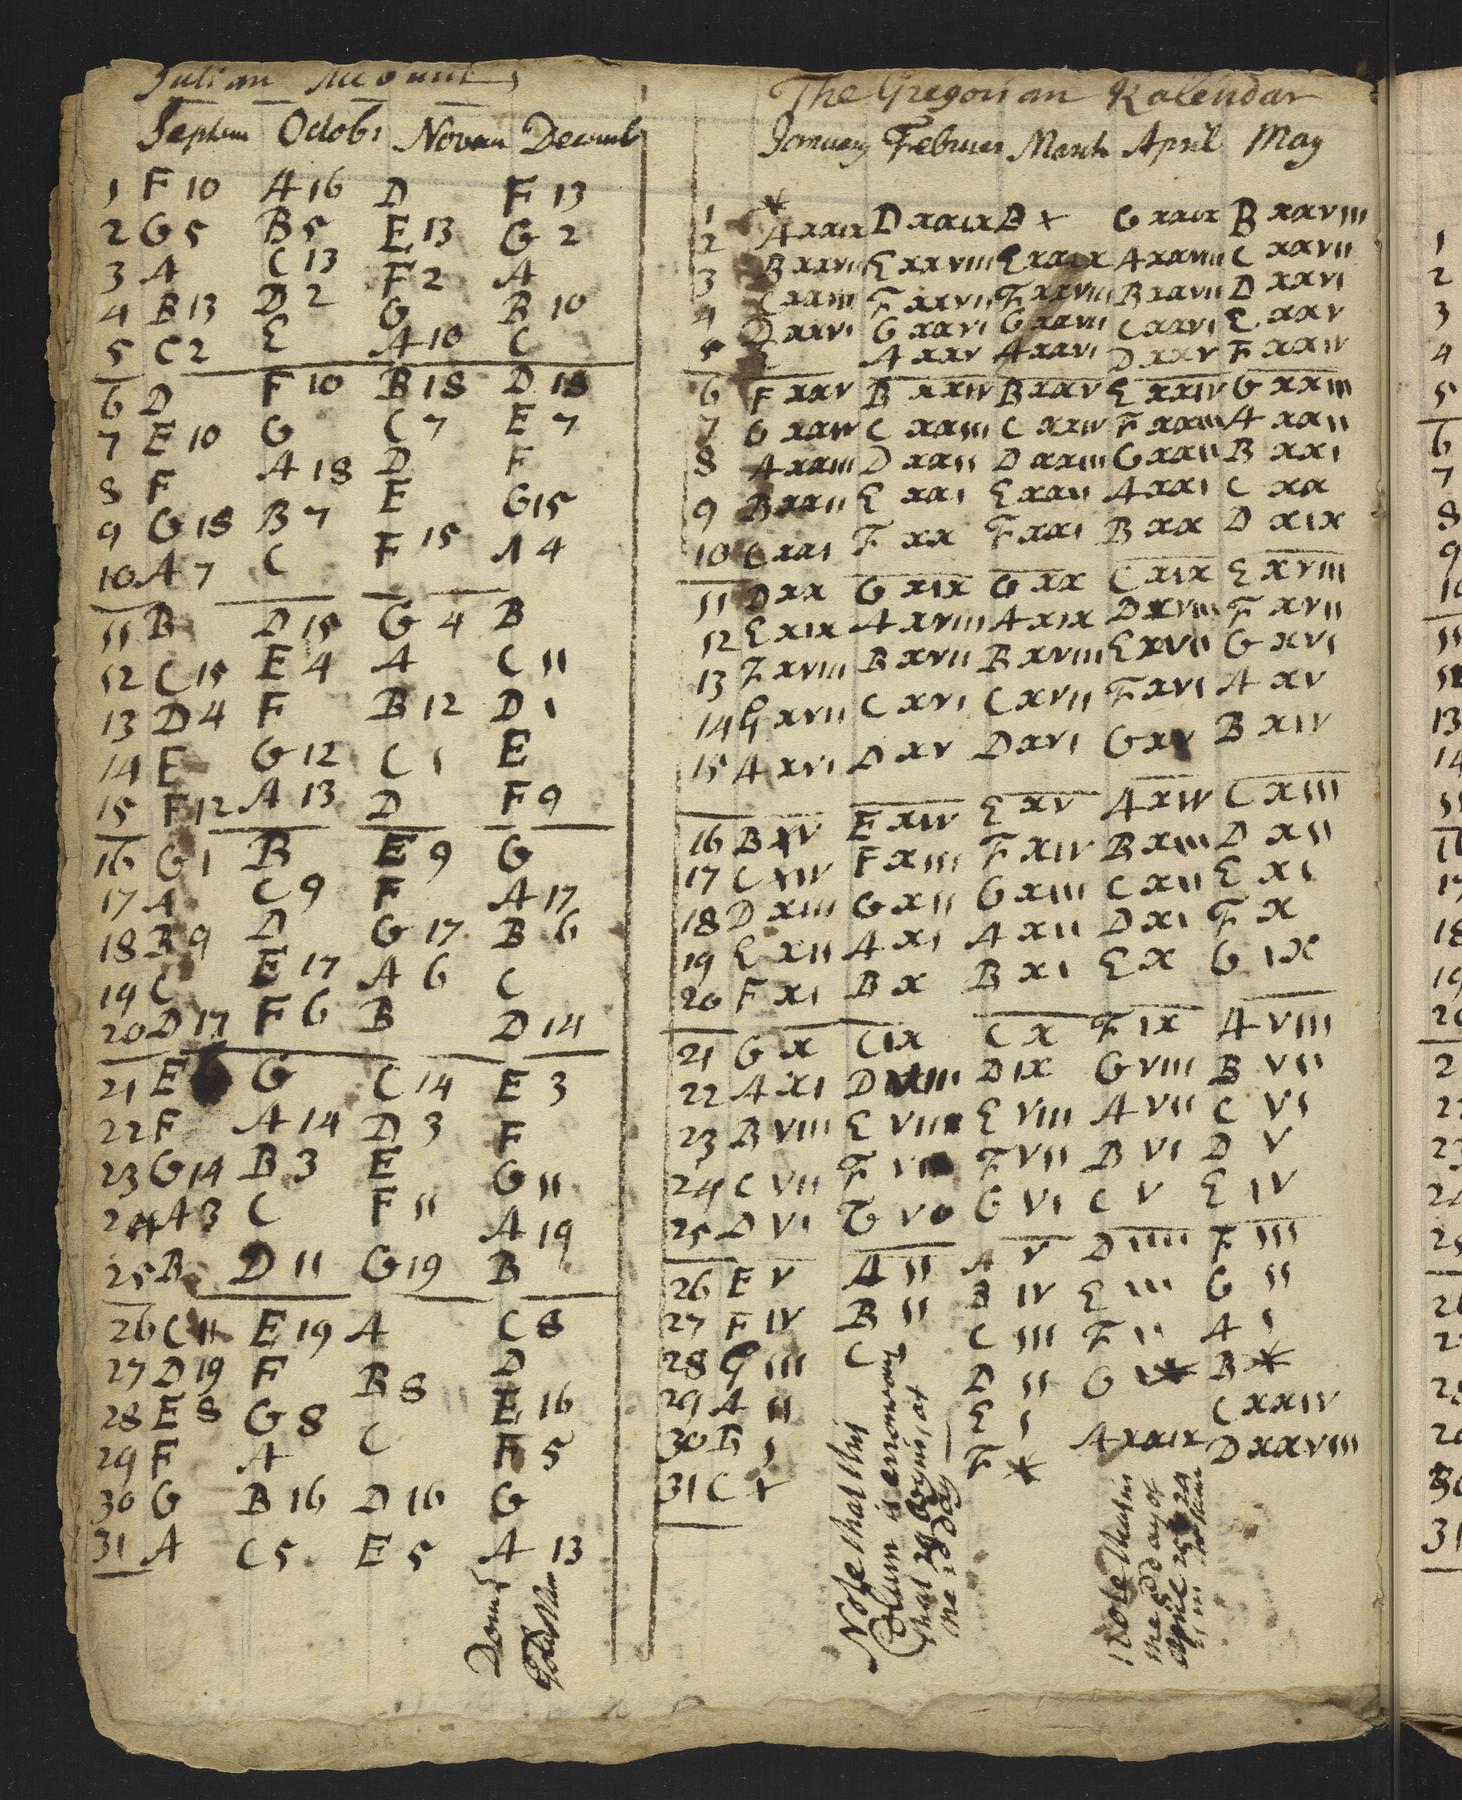 Julian Account
Septem Octobr Novem Decemb
1 F 10 A 16 D F 13
2 G 5 B 5 E 13 G 2
3 A C 13 F 2 A
4 B 13 D 2 G B 10
5 C 2 E A 10 C
6 D F 10 B 18 D 18
7 E 10 G C 7 E 7
8 F A 18 D F
9 G 18 B 7 E G 15
10 A 7 C F 15 A 4
11 B D 15 G 4 B
12 C 15 E 4 A C 11
13 D 4 F B 12 D 1
14 E G 12 C 1 E
15 F 12 A 13 D F 9
16 G 1 B E 9 G
17 A C 9 F A 17
18 B 9 D G 17 B 6
19 C E 17 A 6 C
20 D 17 F 6 B D 14
21 E G C 14 E 3
22 F A 14 D 3 F
23 G 14 B 3 E G 11
24 A 3 C F 11 A 19
25 B D 11 G 19 B
26 C 11 E 19 A C 8
27 D 19 F B 8 D
28 E 8 G 8 C E 16
29 F A F 5
30 G B 16 D 16 G
31 A C 5 E 5 A 13
The Gregorian Kalendar
January Februar March April May
1 * A xxix D xxix D * G xxix B xxviii
2 B xxviii E xxviii E xxix A xxviii C xxvii
3 C xxvii F xxvii F xxviii B xxvii D xxvi
4 D xxvi G xxvi G xxvii C xxvi E xxv
5 A xxv A xxvi D xxv F xxiv
6 F xxv B xxiv B xxv E xxiv G xxiii
7 G xxiv C xxiii C xxiv F xxiii A xxii
8 A xxiii D xxii D xxiii G xxii B xxi
9 B xxii E xxi E xxii A xxi C xx
10 C xxi F xx F xxi B xx D xix
11 D xx G xix G xx C xix E xviii
12 E xix A xviii A xix D xviii F xvii
13 F xviii B xvii B xviii E xvii G xvi
14 G xvii C xvi C xvii F xvi A xv
15 A xvi D xv D xvi G xv B xiv
16 B xv E xiv E xv A xiv C xiii
17 C xiv F xiii F xiv B xiii D xii
18 D xiii G xii G xiii C xii E xi
19 E xii A xi A xii D xi F x
20 F xi B x B xi E x G ix
21 G x C ix C x F ix A viii
22 A xi D viii D ix G viii B vii
23 B viii E viii E viii A vii C vi
24 C vii F vi F vii B vi D v
25 D vi G v G vi C v E iv
26 E v A ii A v D iiii F iii
27 F iv B ii B iv E iii G ii
28 G iii C C iii F ii A i
29 A ii D ii G i* B *
30 B i E i A xxix C xxiv
31 C * F * D xxviii
Domi
Note that this
Colum is erroneous
that 29 begins at
the 1 day
Note that in
the 5 day of
April 25 24